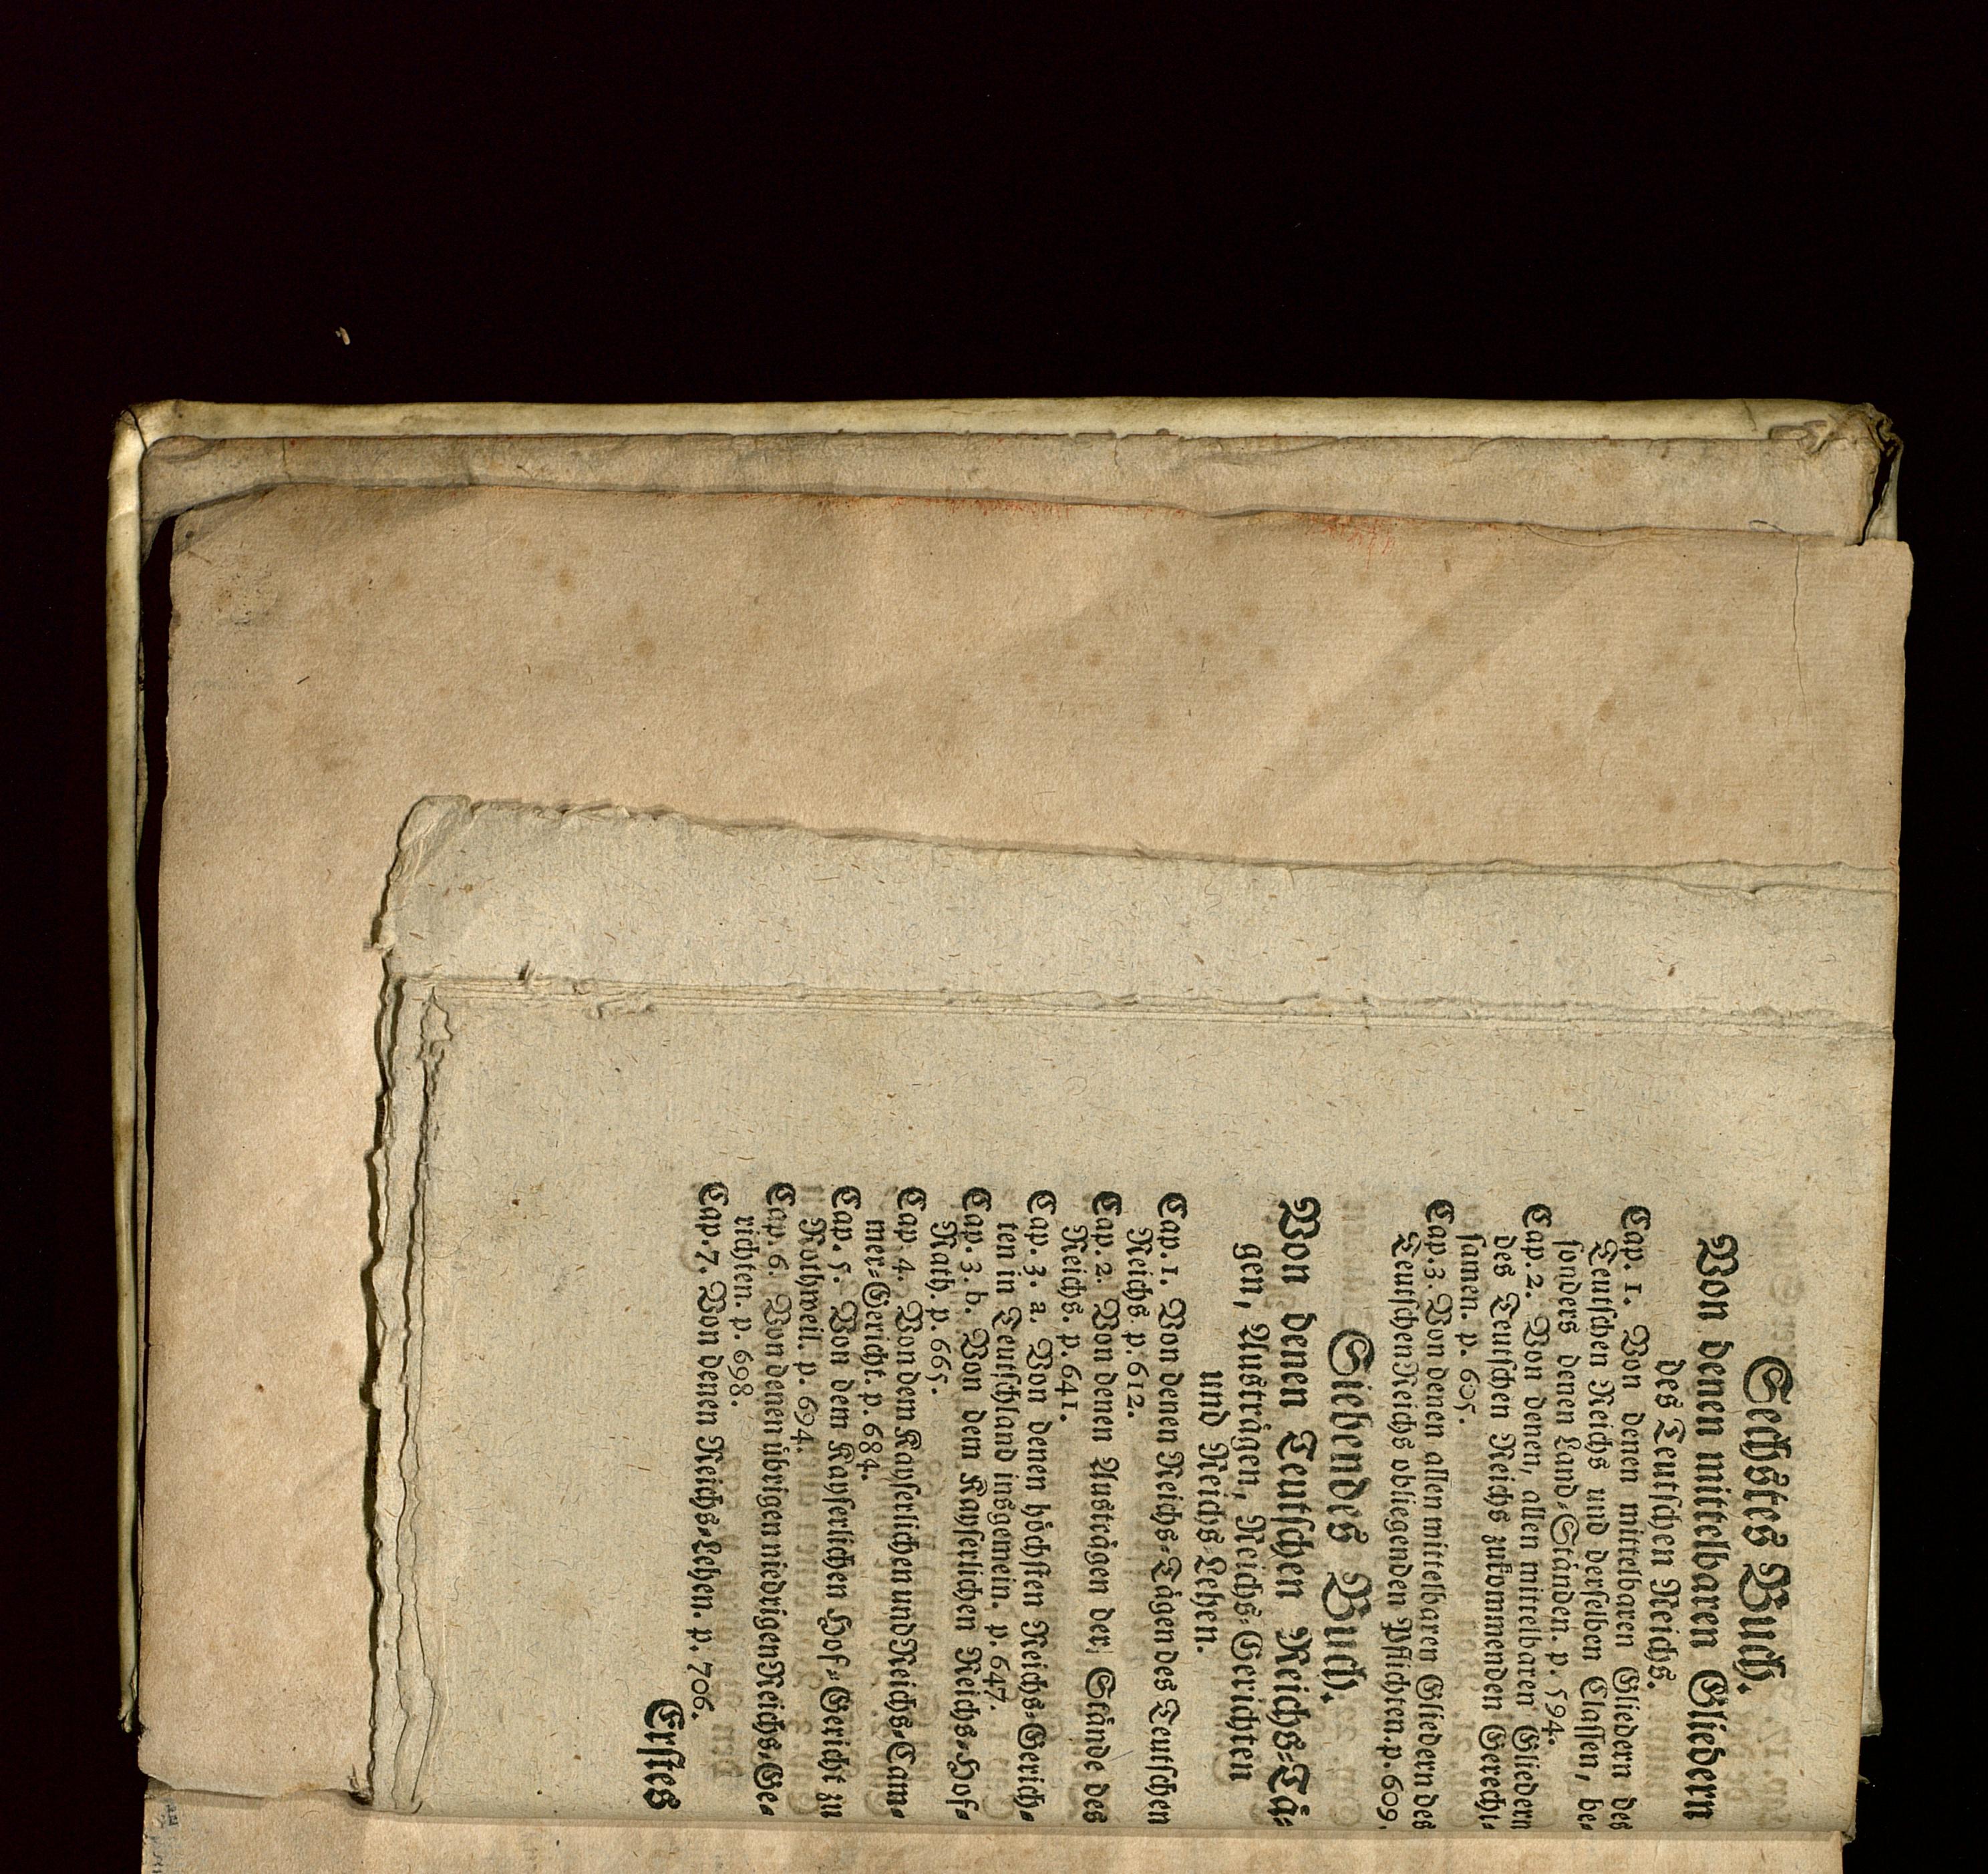 Sechstes Buch.
Von denen mittelbaren Gliedern
des Teutschen Reichs.
Cap. 1. Von denen mittelbaren Gliedern des
Teutschen Reichs und derselben Classen, be-
sonders denen Land-Ständen. p. 594.
Cap. 2. Von denen, allen mittelbaren Gliedern
des Teutschen Reichs zukommenden Gerecht-
samen. p. 605.
Cap. 3. Von denen allen mittelbaren Gliedern des
Teutschen Reichs obliegenden Pflichten. p. 609.
Siebendes Buch.
Von denen Teutschen Reichs-Tä-
gen, Austrägen, Reichs-Gerichten
und Reichs-Lehen.
Cap. 1. Von denen Reichs-Tägen des Teutschen
Reichs. p. 612.
Cap. 2. Von denen Austrägen der Stände des
Reichs. p. 641.
Cap. 3. a. Von denen höchsten Reichs-Gerich-
ten in Teutschland insgemein. p. 647.
Cap. 3. b. Von dem Kayserlichen Reichs-Hof-
Rath. p. 665.
Cap. 4. Von dem Kayserlichen und Reichs-Cam-
mer-Gericht. p. 684.
Cap. 5. Von dem Kayserlichen Hof-Gericht zu
Rothweil. p. 694.
Cap. 6. Von denen übrigen niedrigen Reichs-Ge-
richten. p. 698.
Cap. 7. Von denen Reichs-Lehen. p. 706.
Erstes